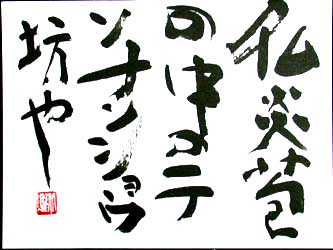 仏炎苞
の中のテ
ンナンショウ
坊や